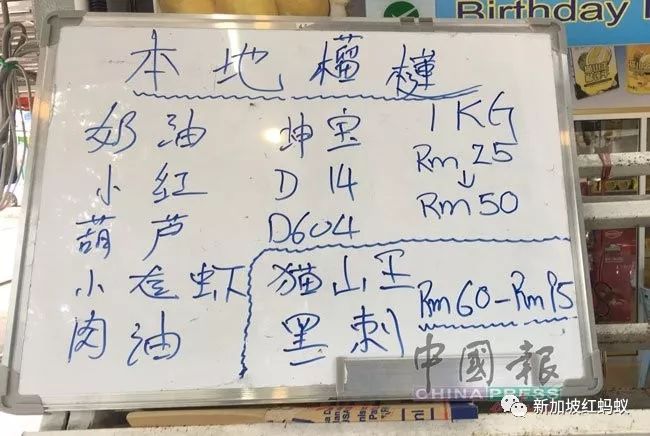 Birthday
本地榴槤
奶油 坤宝 1KG
小红 D14 Rm25
↓
葫芦 D604 Rm50
小龙虾 猫山王 Rm60-Rm95
肉油 黑刺
中國報
CHINA PRESS
新加坡红蚂蚁